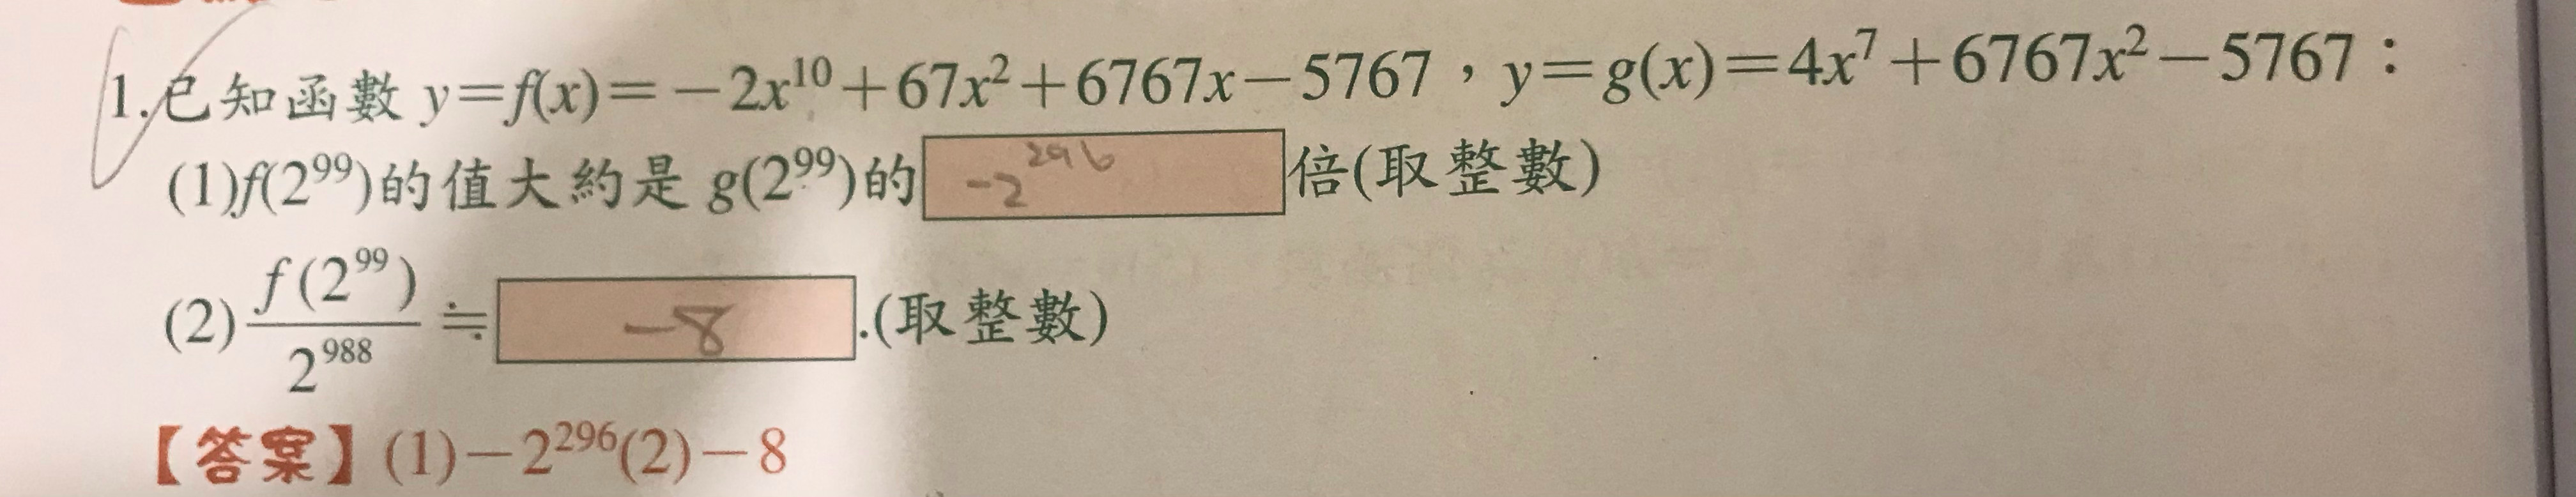 1.已知函數 y=f(x)=−2x¹⁰+67x²+6767x−5767，y=g(x)=4x⁷+6767x²−5767：
(1)f(2⁹⁹)的值大約是 g(2⁹⁹)的 -2²⁹⁶ 倍(取整數)
(2) f(2⁹⁹)/2⁹⁸⁸ ≒ -8 .(取整數)
【答案】(1)−2²⁹⁶(2)−8